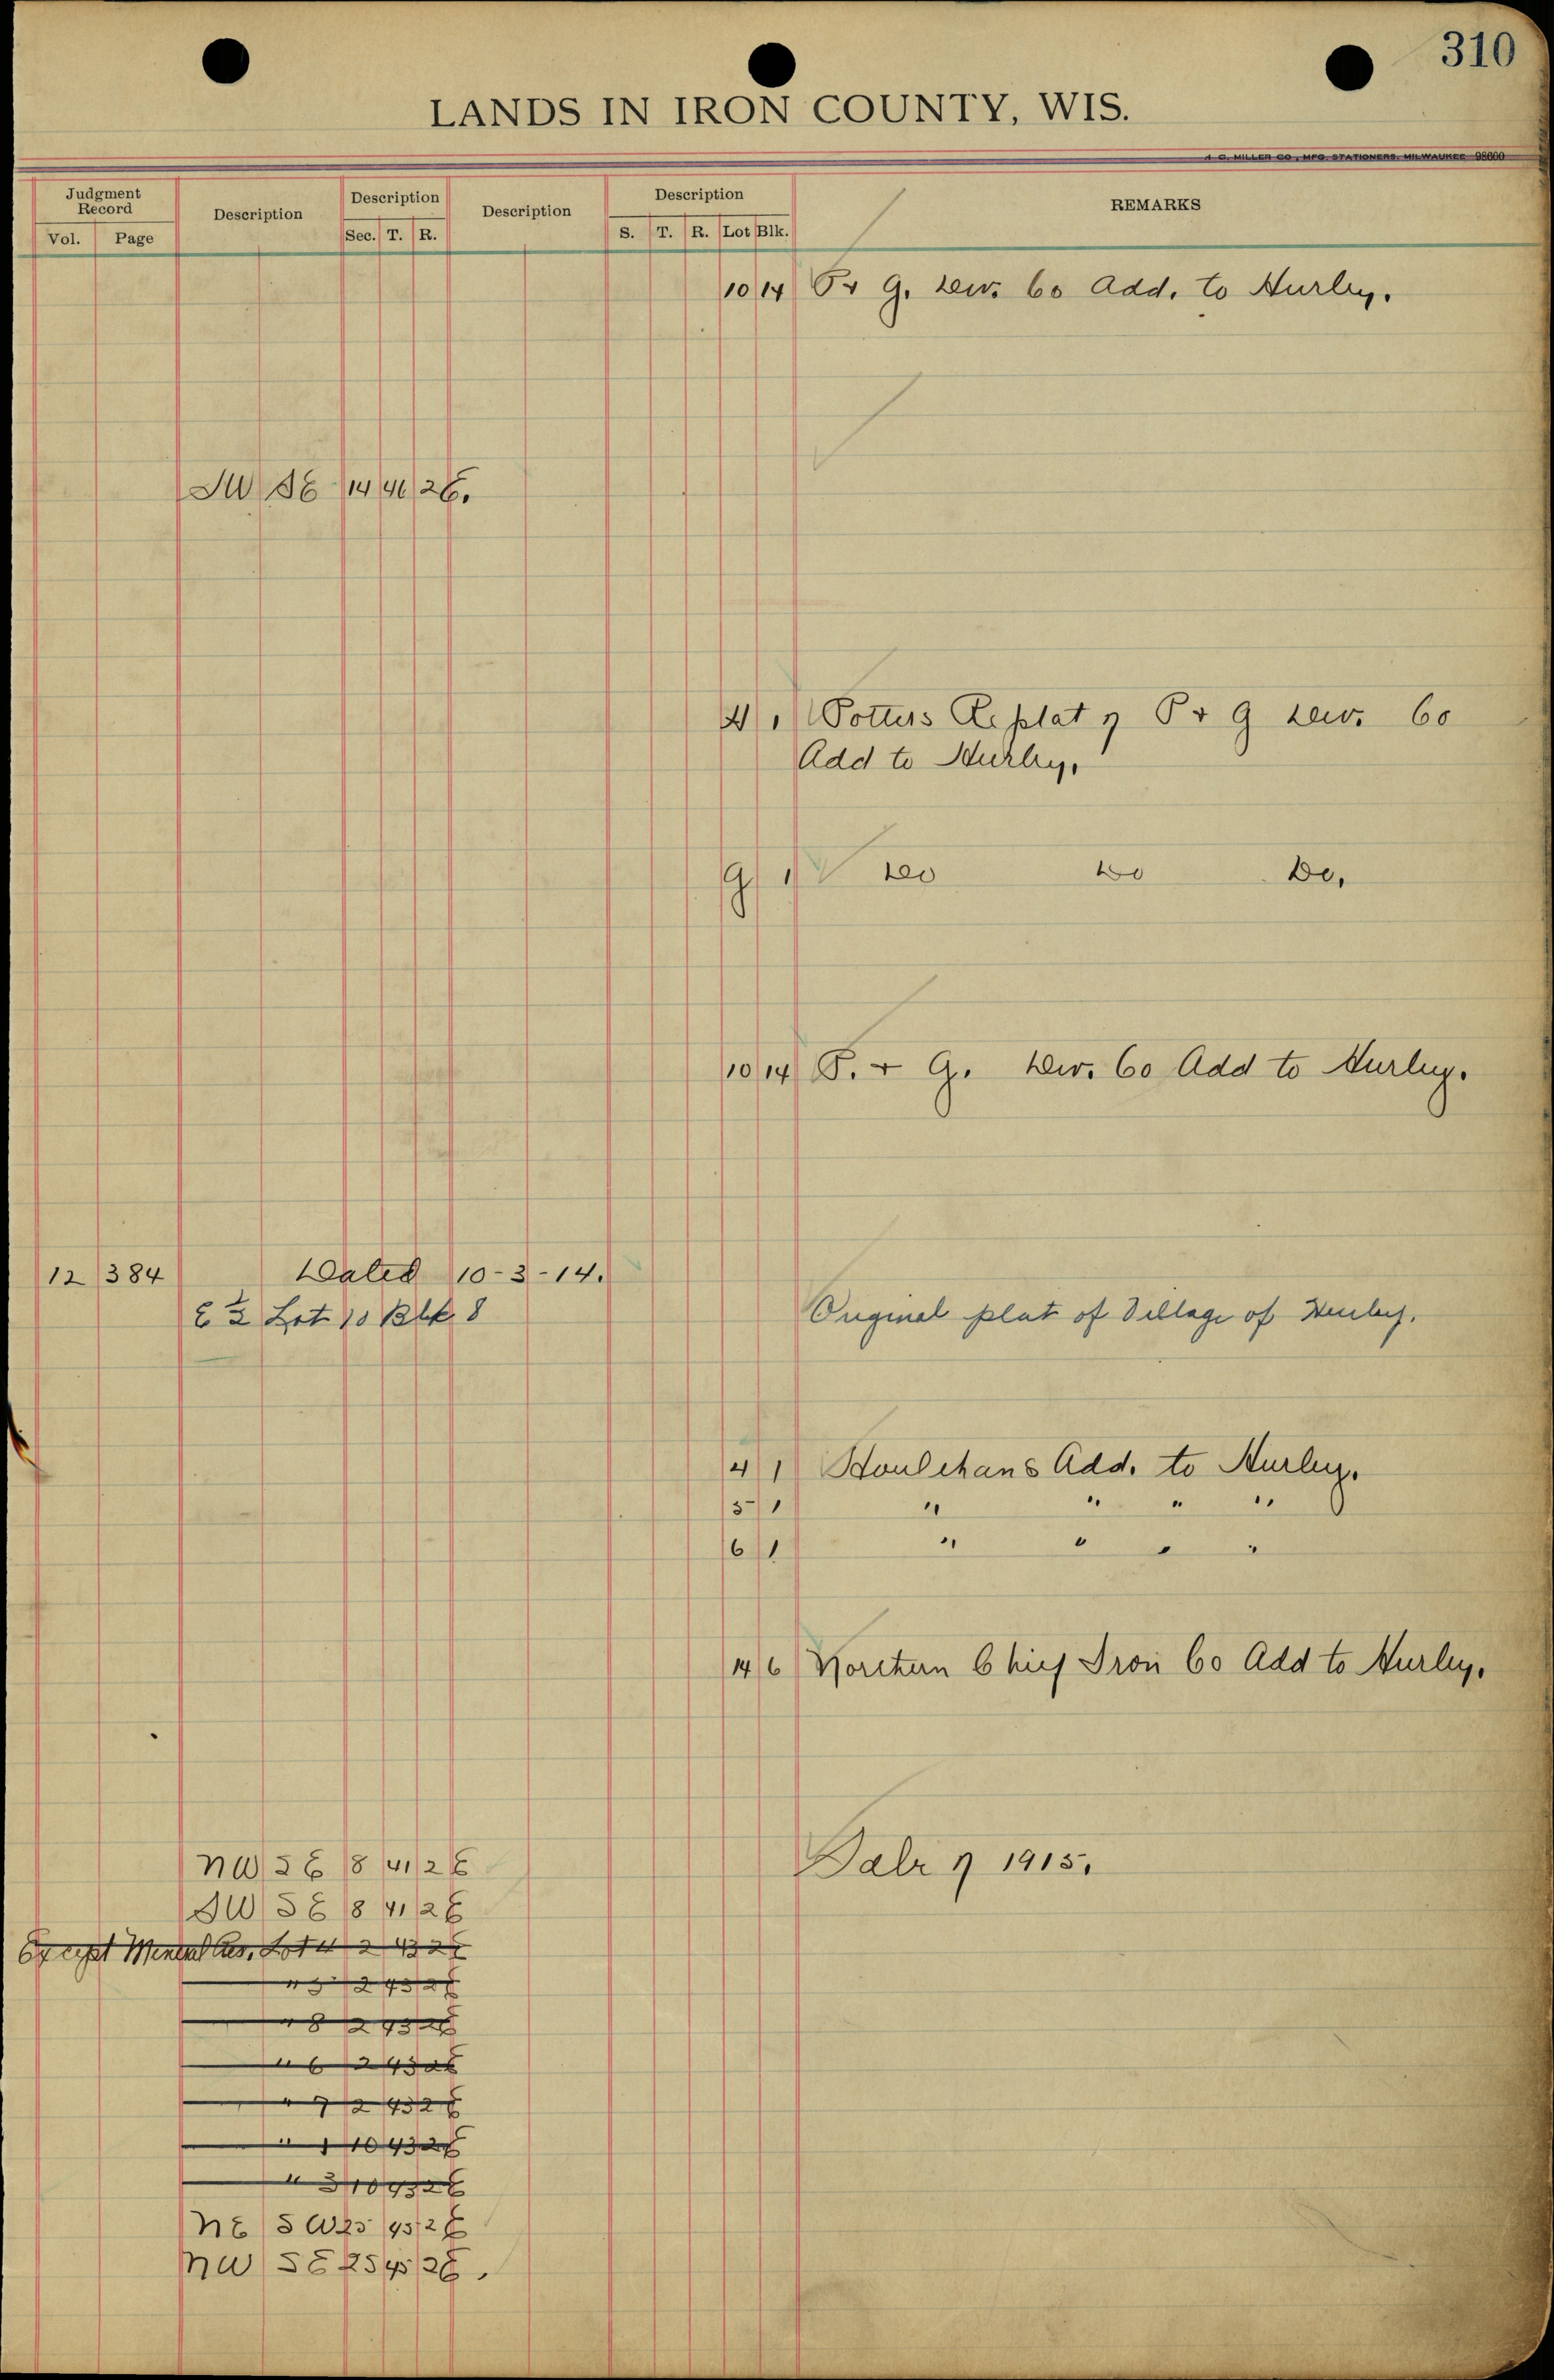 310
LANDS IN IRON COUNTY, WIS.
H. C. MILLER CO., MFG. STATIONERS. MILWAUKEE 98600
Judgment Record Description Description Description Description REMARKS
Vol. Page Sec. T. R. S. T. R. Lot Blk.
10 14 P + G. Dev. Co Add. to Hurley.
SW SE 14 46 2E.
4 1 Potters Replat of P + G Dev. Co
Add to Hurley.
9 1 Do Do Do.
10 14 P. + G. Dev. Co Add to Hurley.
12 384 Dated 10-3-14.
E ½ Lot 10 Blk 8 Original plat of Village of Hurley.
4 1 Houlehans Add. to Hurley.
5 1 " " " "
6 1 " " " "
14 6 Northern Chief Iron Co Add to Hurley.
NW SE 8 41 2E Sale of 1915.
SW SE 8 41 2E
Except Mineral Res. Lot 4 2 43 2E
" 5 2 43 2E
" 8 2 43 2E
" 6 2 43 2E
" 7 2 43 2E
" 1 10 43 2E
" 3 10 43 2E
NE SW 25 45 2E
NW SE 25 45 2E.